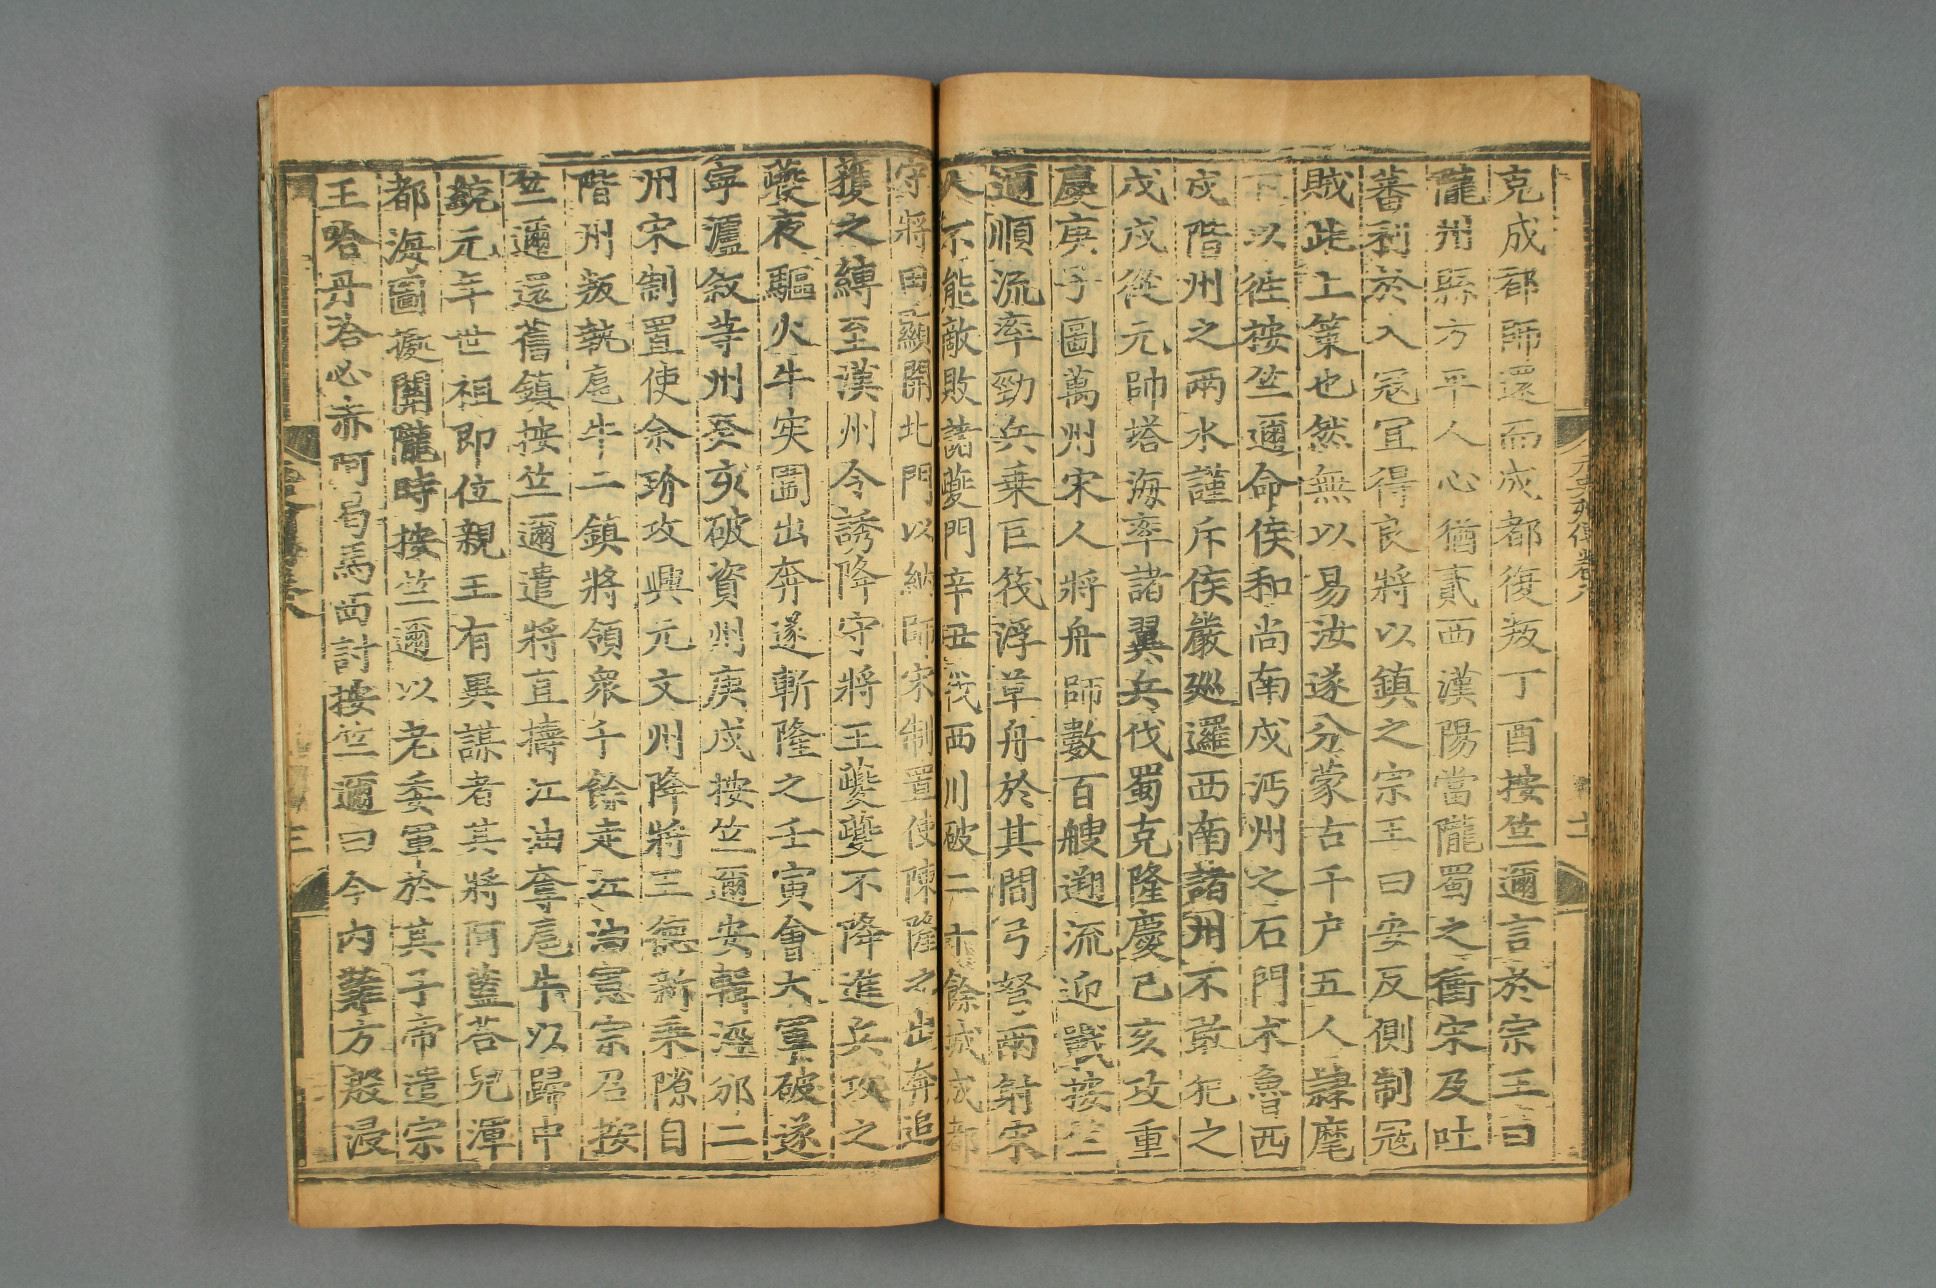 克成都師還而成都復叛丁酉按竺邇言於宗王曰
隴州縣方平人心猶貳西漢陽當隴蜀之衝宋及吐
蕃利於入冦宜得良將以鎮之宗王曰安反側制冦
賊此上策也然無以易汝遂分蒙古千户五人隸麾
下以徃按竺邇命侯和尚南戍沔州之石門朮魯西
戍階州之兩水謹斥侯嚴廵邏西南諸州不敢犯之
戊戌從元帥塔海率諸翼兵伐蜀克隆慶己亥攻重
慶庚子圖萬州宋人將舟師數百艘遡流迎戰按竺
邇順流率勁兵乗巨筏浮草舟於其間弓弩兩射宋
人不能敵敗諸夔門辛丑伐西川破二十餘城成都
守將田顯開北門以納師宋制置使陳隆之出奔追
獲之縛至漢州令誘降守將王夔夔不降進兵攻之
夔夜驅火牛突圍出奔遂斬隆之壬寅會大軍破遂
寧瀘敘等州癸亥破資州庚戌按竺邇安輯涇邠二
州宋制置使余玠攻興元文州降將王德新乗隙自
階州叛執扈牛二鎮將領衆千餘走江油憲宗召按
竺邇還舊鎮按竺邇遣將直擣江油奪扈牛以歸中
綂元年世祖即位親王有異謀者其將阿藍荅兒渾
都海圖據關隴時按竺邇以老委軍於其子帝遣宗
王哈丹荅必赤阿曷馬西討按竺邇曰今内難方殷浸
元史列傳卷八